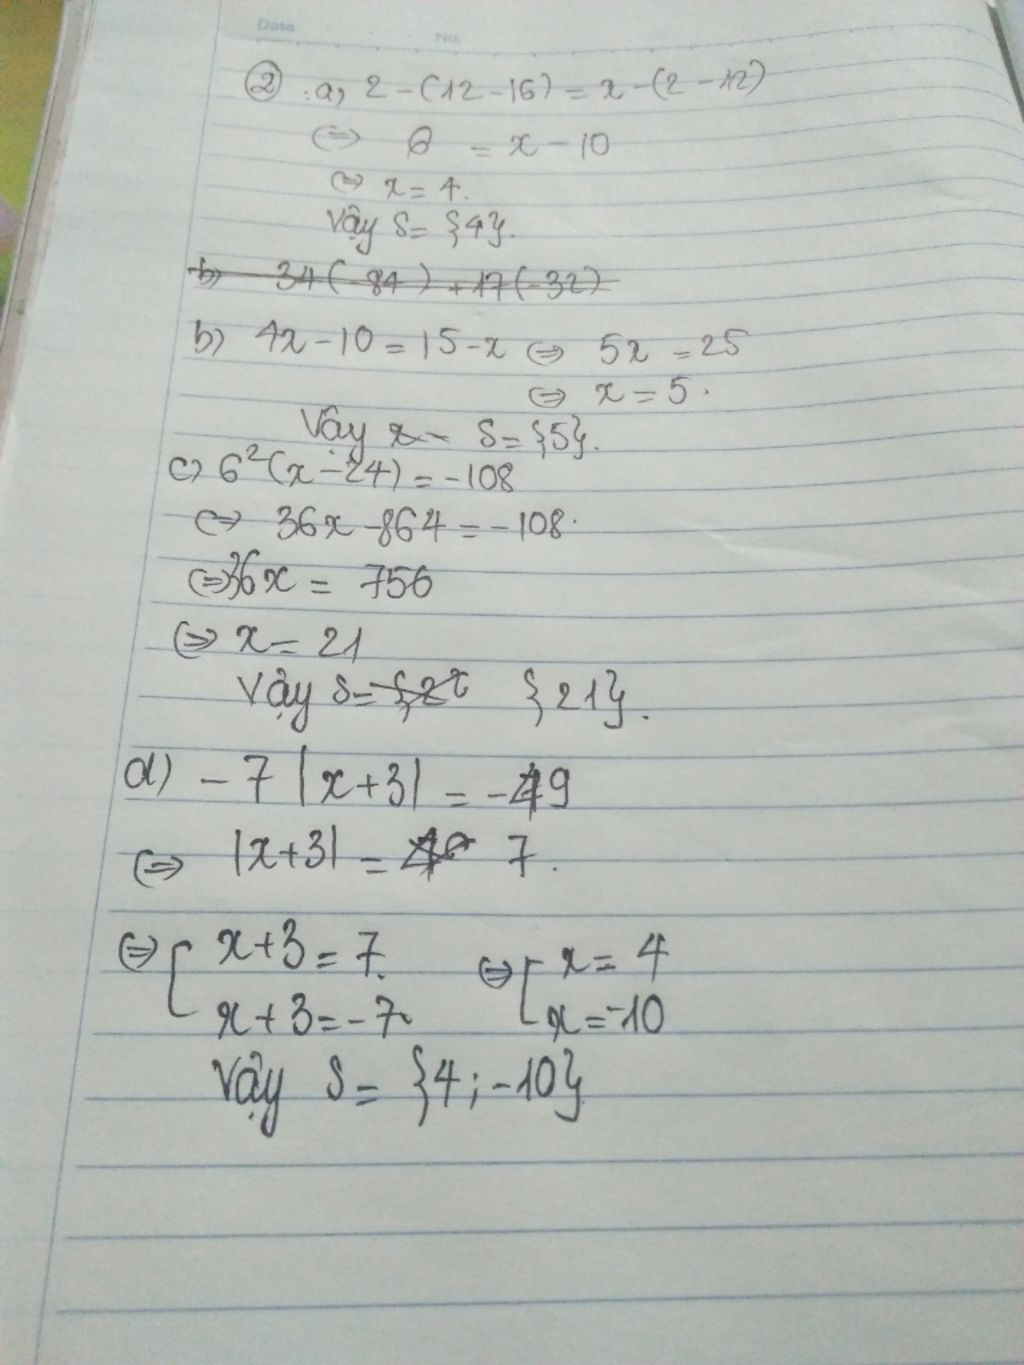 Date
No.
② a, 2 - (12 - 16) = x - (2 - 12)
⇔ 6 = x - 10
⇔ x = 4.
Vậy S = {4}.
b) 34(-84) + 17(-32)
b) 4x - 10 = 15 - x ⇔ 5x = 25
⇔ x = 5.
Vậy x = S = {5}.
c) 6²(x - 24) = -108
⇔ 36x - 864 = -108.
⇔ 36x = 756
⇔ x = 21
Vậy S = {21}.
d) -7 |x+3| = -49
⇔ |x+3| = 7.
⇔ [ x+3 = 7. ⇔ [ x = 4
x+3 = -7 x = -10
Vậy S = {4; -10}